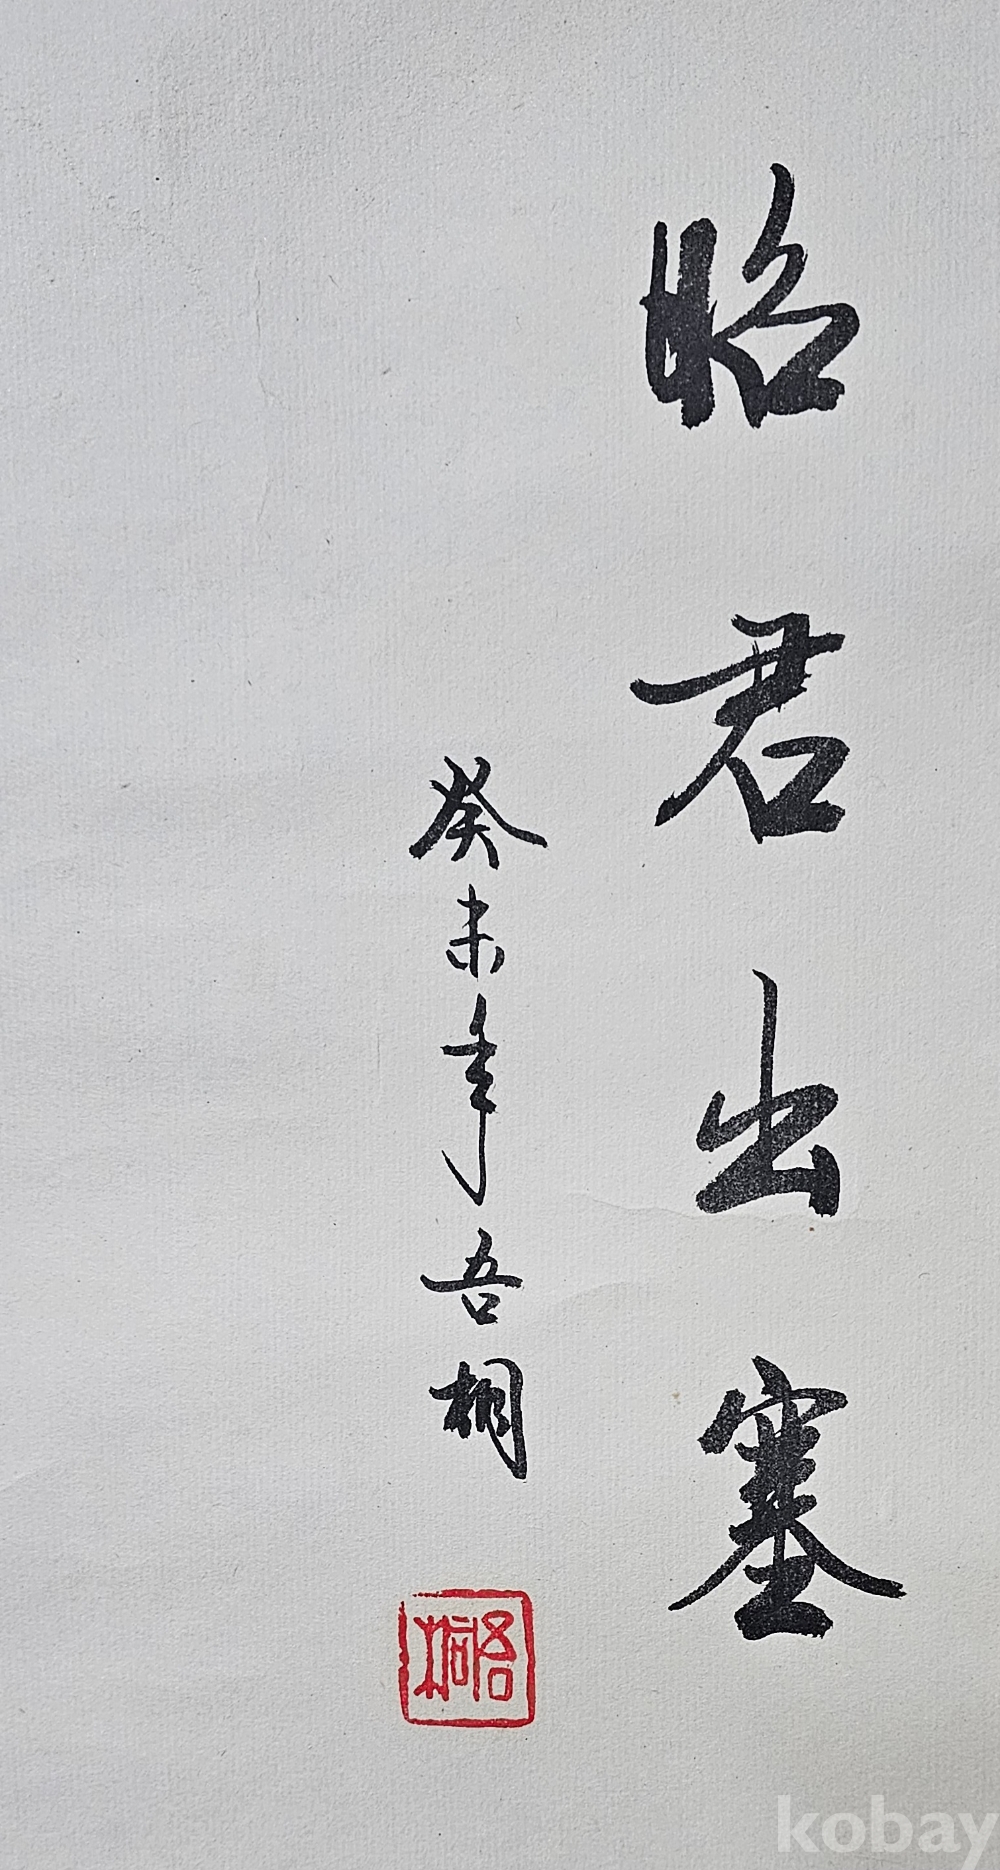 昭君出塞
癸未年吾桐
吾桐
kobay